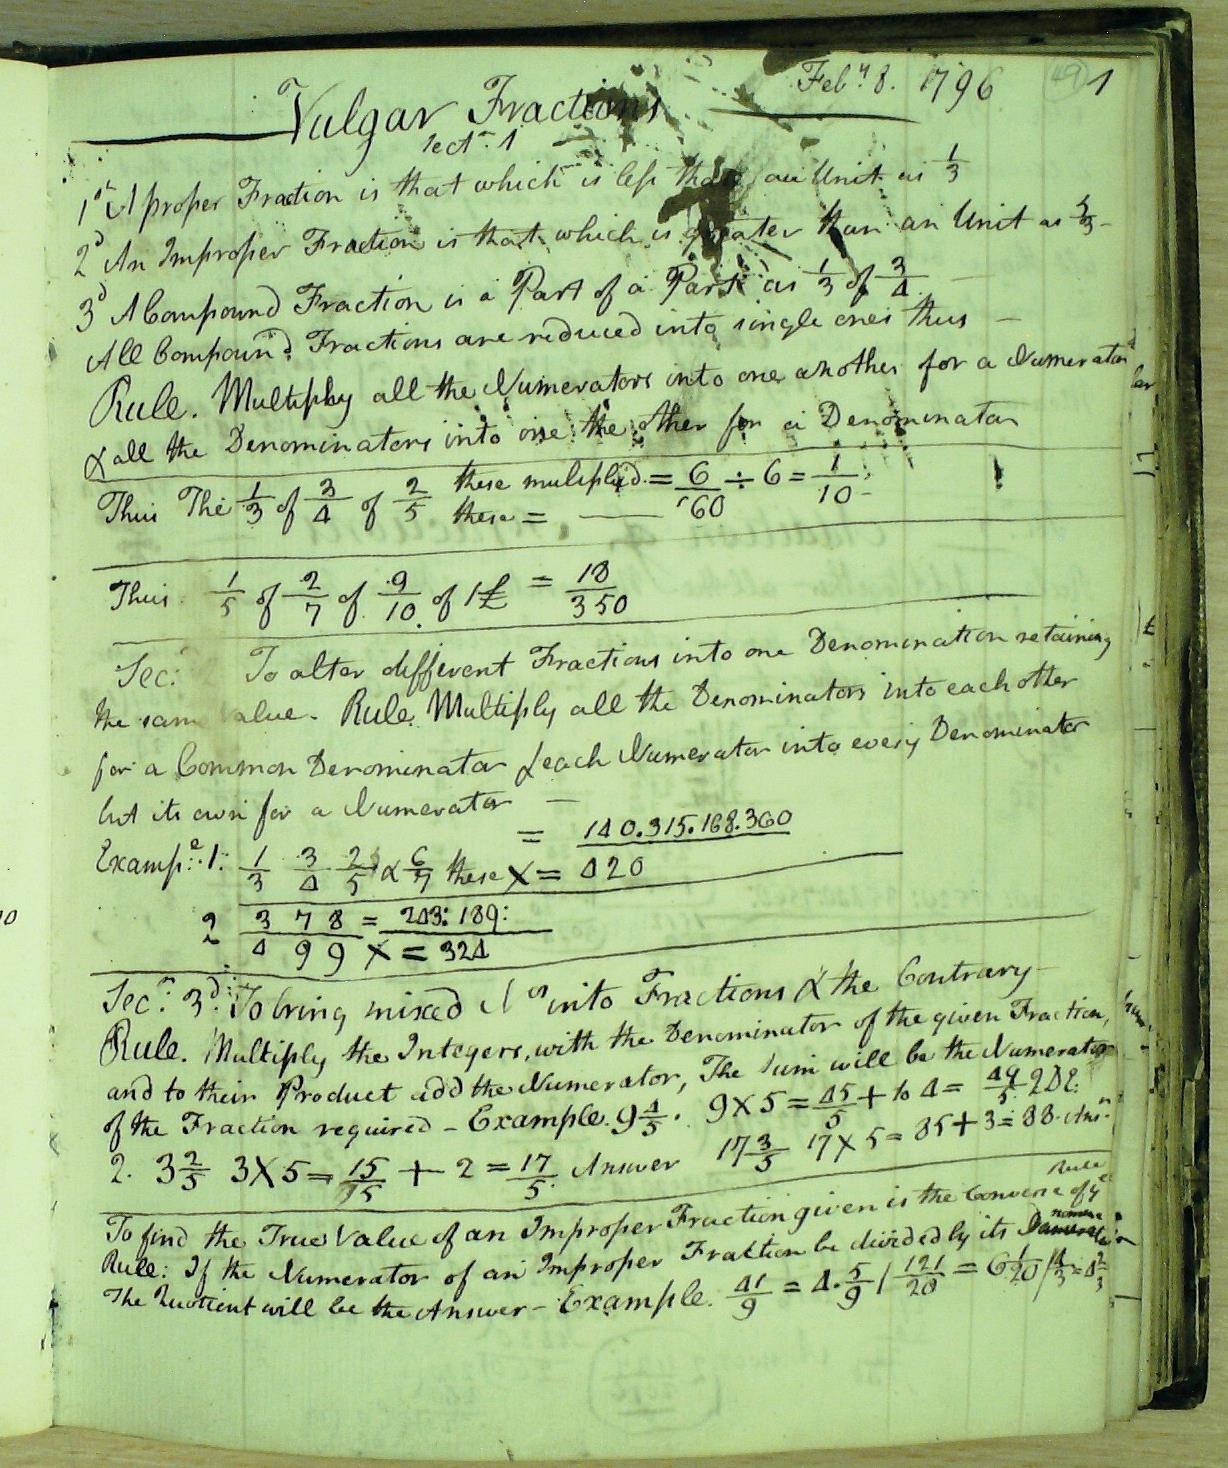 Feby. 8. 1796 (49) 1
Vulgar Fractions
Sectn. 1
1st A proper Fraction is that which is less than an Unit as 1/3
2d An Improper Fraction is that which is greater than an Unit as
3d A Compound Fraction is a Part of a Part as 1/3 of 3/4
All Compound Fractions are reduced into single ones thus —
Rule. Multiply all the Numerators into one another for a Numerator
& all the Denominators into one the other for a Denominator
Thus The 1/3 of 3/4 of 2/5 these multiplied = 6/60 ÷ 6 = 1/10
these =
Thus 1/5 of 2/7 of 9/10 of 1£ = 18/350
Sec: To alter different Fractions into one Denomination retaining
the same Value. Rule. Multiply all the Denominators into each other
for a Common Denominator & each Numerator into every Denominator
but its own for a Numerator —
Examp:e 1: 1/3 3/4 2/5 & 6/7 these X = 140.315.168.360 / 420
2 3 7 8 / 4 9 9 X = 243: 189: / 324
Secn: 3d: To bring mixed Nos into Fractions & the Contrary —
Rule. Multiply the Integers, with the Denominator of the given Fraction,
and to their Product add the Numerator, The Sum will be the Numerator
of the Fraction required – Example. 9 4/5. 9 X 5 = 45/5 + to 4 = 49/5
2. 3 2/5 3 X 5 = 15/5 + 2 = 17/5. Answer 17 3/5 17 X 5 = 85 + 3 = 88. Ansr.
To find the True Value of an Improper Fraction given is the Converse of ye Rule
Rule: If the Numerator of an Improper Fraction be divided by its
The Quotient will be the Answer – Example. 41/9 = 4. 5/9 | 121/20 = 6 1/20